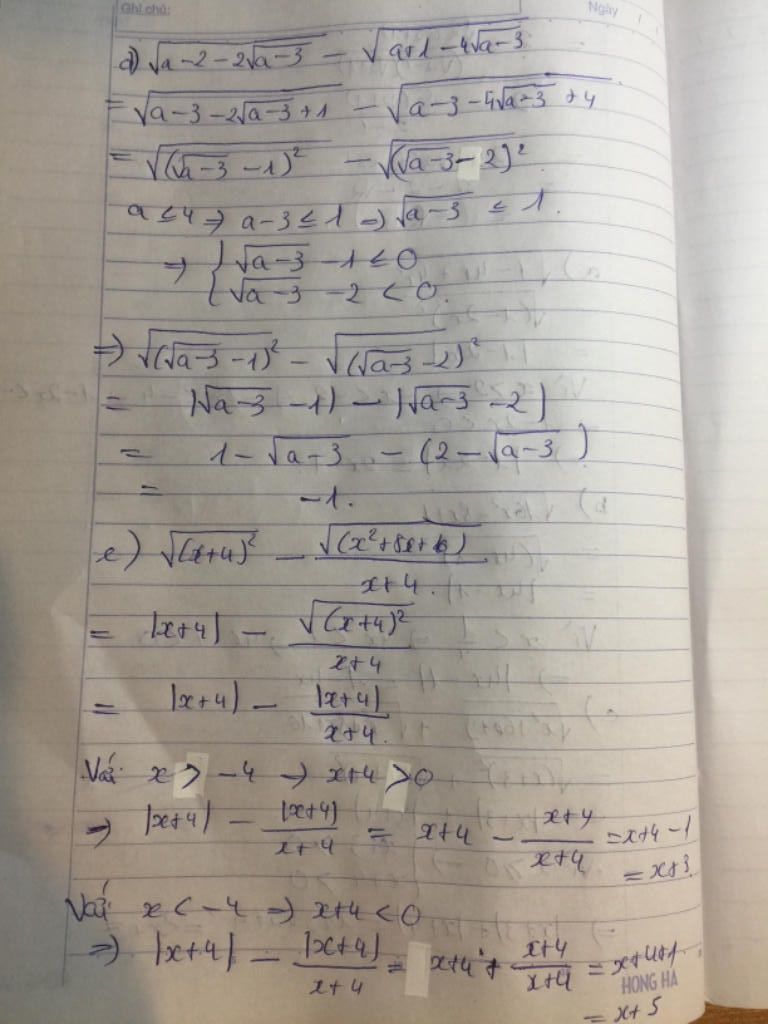 Ghi chú:
Ngày
d) √(a-2-2√(a-3)) - √(a+1-4√(a-3))
= √(a-3-2√(a-3)+1) - √(a-3-4√(a-3)+4)
= √((√(a-3) -1)²) - √((√(a-3) - 2)²)
a ≤ 4 ⇒ a-3 ≤ 1 ⇒ √(a-3) ≤ 1.
⇒ { √(a-3) -1 ≤ 0
√(a-3) -2 < 0.
⇒ √((√(a-3) -1)²) - √((√(a-3) -2)²)
= |√(a-3) -1| - |√(a-3) -2|
= 1 - √(a-3) - (2 - √(a-3))
= -1.
e) √((x+4)²) - √(x²+8x+16) / (x+4).
= |x+4| - √((x+4)²) / (x+4)
= |x+4| - |x+4| / (x+4).
Với x > -4 → x+4 > 0
⇒ |x+4| - |x+4| / (x+4) = x+4 - (x+4)/(x+4) = x+4-1
= x+3.
Với x < -4 ⇒ x+4 < 0
⇒) |x+4| - |x+4| / (x+4) = x+4 + (x+4)/(x+4) = x+4+1
HONG HA
= x+5